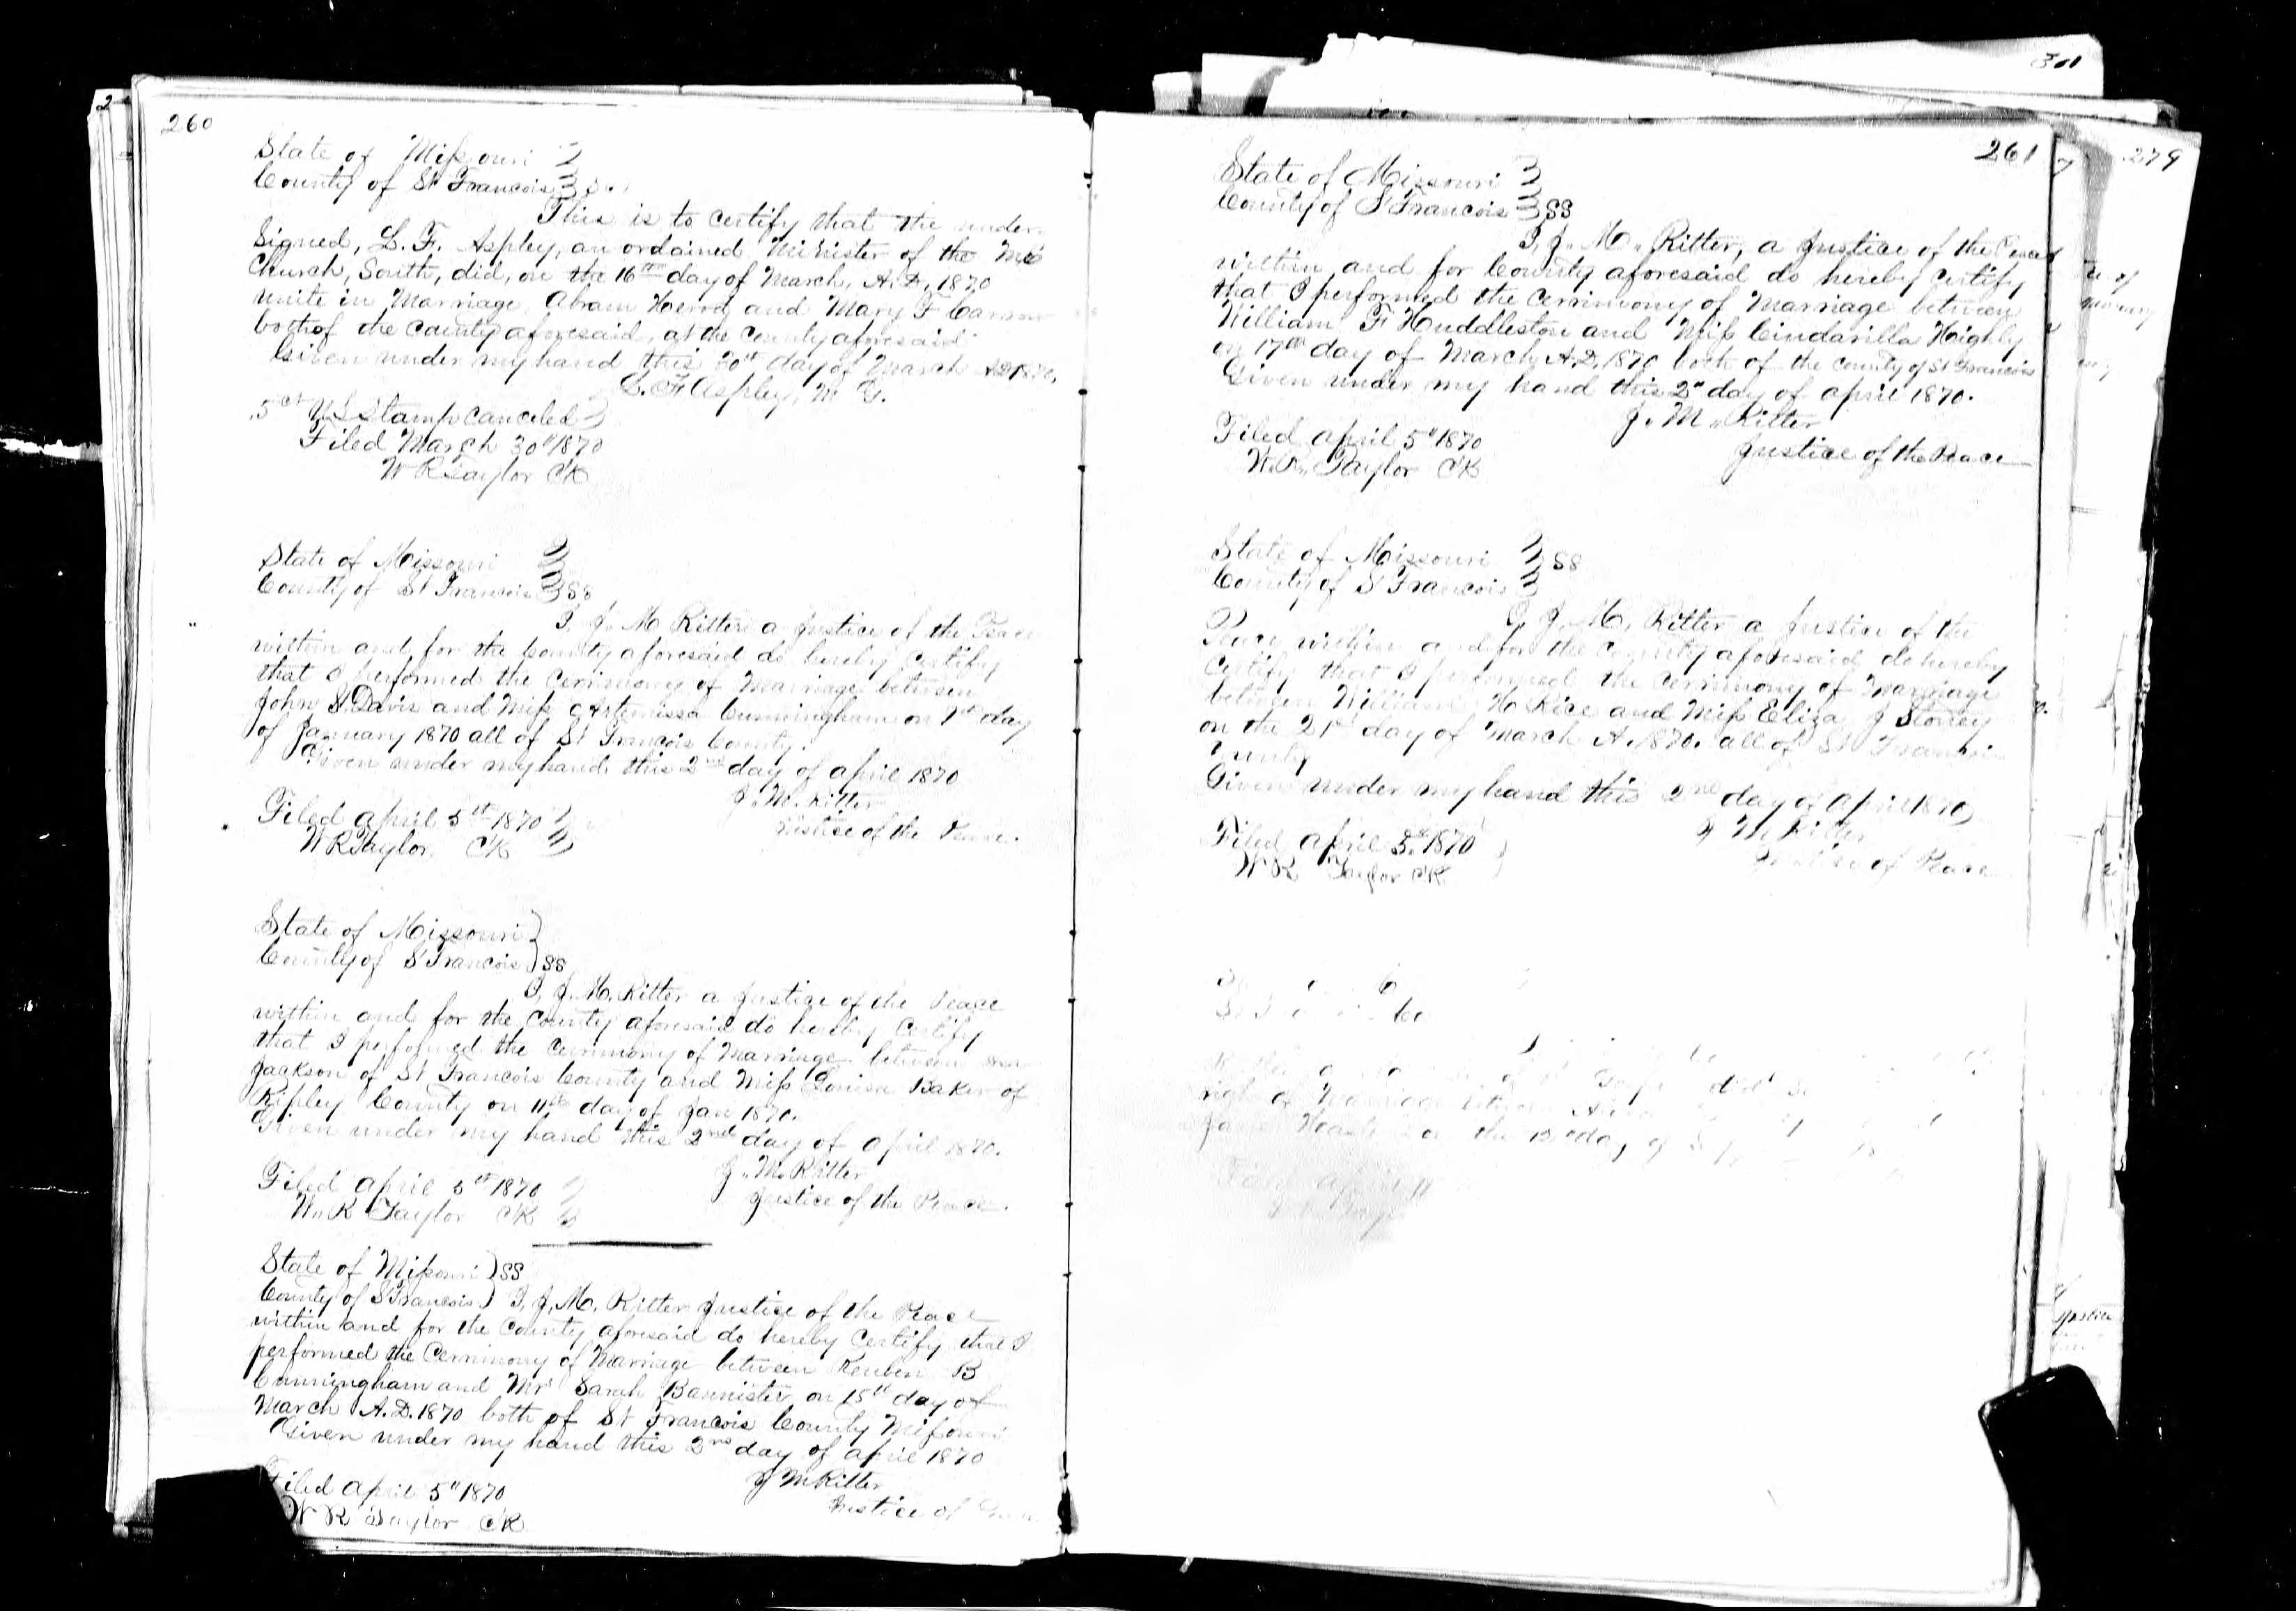 260
State of Missouri
County of St Francois
This is to certify that the under
Signed, L. F. Aspley, an ordained Minister of the
Church, South, did, on the 16th day of March, A.D. 1870
unite in Marriage, Abram and Mary F
both of the County aforesaid, at the County aforesaid
Given under my hand this 30th day of March AD 1870.
L. F. Aspley, M. G.
5 ct U.S Stamp canceled
Filed March 30th 1870
W R Taylor Ck
State of Missouri
County of St Francois SS
I, J. M Ritter a Justice of the Peace
within and for the County aforesaid do hereby Certify
that I performed the Cerrimony of Marriage between
John S. Davis and Miss Artemissa Cunningham on 7th day
of January 1870 all of St Francois County.
Given under my hand this 2nd day of april 1870
J. M. Ritter
Justice of the Peace.
Filed april 5th 1870
W R Taylor Ck
State of Missouri
County of St Francois SS
I, J. M. Ritter a Justice of the Peace
within and for the County aforesaid do hereby Certify
that I performed the Cerrimony of Marriage between
Jackson of St Francois County and Miss Louisa Baker of
Ripley County on 11th day of Jan 1870.
Given under my hand this 2nd day of april 1870.
J. M. Ritter
Justice of the Peace.
Filed april 5th 1870
W. R Taylor Ck
State of Missouri SS
County of St Francois I, J. M. Ritter Justice of the Peace
within and for the County aforesaid do hereby Certify that I
performed the Cerrimony of Marriage between Reuben B
Cunningham and Mrs Sarah Bannister on 15th day of
March A.D. 1870 both of St Francois County Missouri
Given under my hand this 2nd day of april 1870
J M Ritter
Justice of Peace
Filed april 5th 1870
W R Taylor Ck
301
261
279
State of Missouri
County of St Francois SS
I, J. M. Ritter, a Justice of the Peace
within and for County aforesaid do hereby Certify
that I performed the Cerrimony of Marriage between
William F Huddleston and Miss Cindarilla Highly
on 17th day of March A.D. 1870 both of the County of St Francois
Given under my hand this 2nd day of april 1870.
J. M. Ritter
Justice of the Peace
Filed april 5th 1870
W. R. Taylor Ck
State of Missouri SS
County of St Francois
I, J. M. Ritter a Justice of the
Peace within and for the County aforesaid do hereby
Certify that I performed the Cerrimony of Marriage
between William H Rice and Miss Eliza J
on the 21st day of March A. 1870. all of St Francois
County
Given under my hand this 2nd day of april 1870
J M Ritter
Justice of Peace
Filed april 5th 1870
W R Taylor Ck
of Marriage between
on the day of
Filed april 11